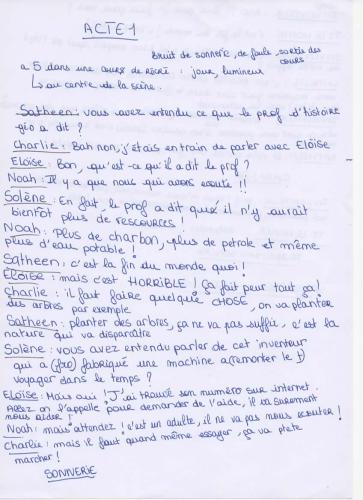 ACTE 1
Bruit de sonnerie, de foule, sortie des
cours
a 5 dans une cours de récré : joue, lumineur
↳ au centre de la scène.
Satheen : vous avez entendu ce que le prof d'histoire
géo a dit ?
Charlie : Bah non, j'étais en train de parler avec Eloïse
Eloïse : Bon, qu'est-ce qu'il a dit le prof ?
Noah : Il y a que nous qui avons écouté !!
Solène : En fait, le prof a dit qu'il n'y aurait
bientôt plus de RESSOURCES !
Noah : Plus de charbon, plus de petrole et même
plus d'eau potable !
Satheen : c'est la fin du monde quoi !
Eloïse : mais c'est HORRIBLE ! ça fait peur tout ça !
Charlie : il faut faire quelque CHOSE, on va planter
des arbres par exemple
Satheen : planter des arbres, ça ne va pas suffir, c'est la
nature qui va disparaître
Solène : vous avez entendu parler de cet inventeur
qui a (fro) fabriqué une machine a (remonter le t)
voyager dans le temps ?
Eloïse : Mais oui ! J'ai trouvé son numéro sur internet.
Allez on l'appelle pour demander de l'aide, il va surement
nous aider !
Noah : mais attendez ! c'est un adulte, il ne va pas nous écouter !
Charlie : mais il faut quand même essayer, ça va p'etre
marcher !
SONNERIE